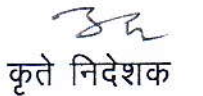 कृते निदेशक